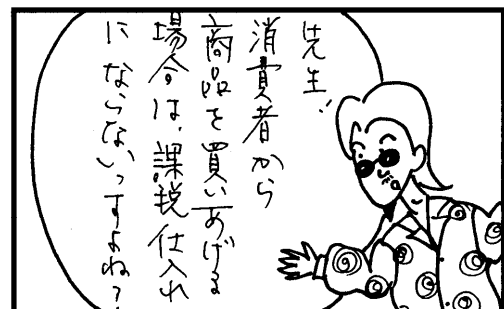 先生!
消費者から
商品を買いあげる
場合は、課税仕入れ
にならないっすよね?